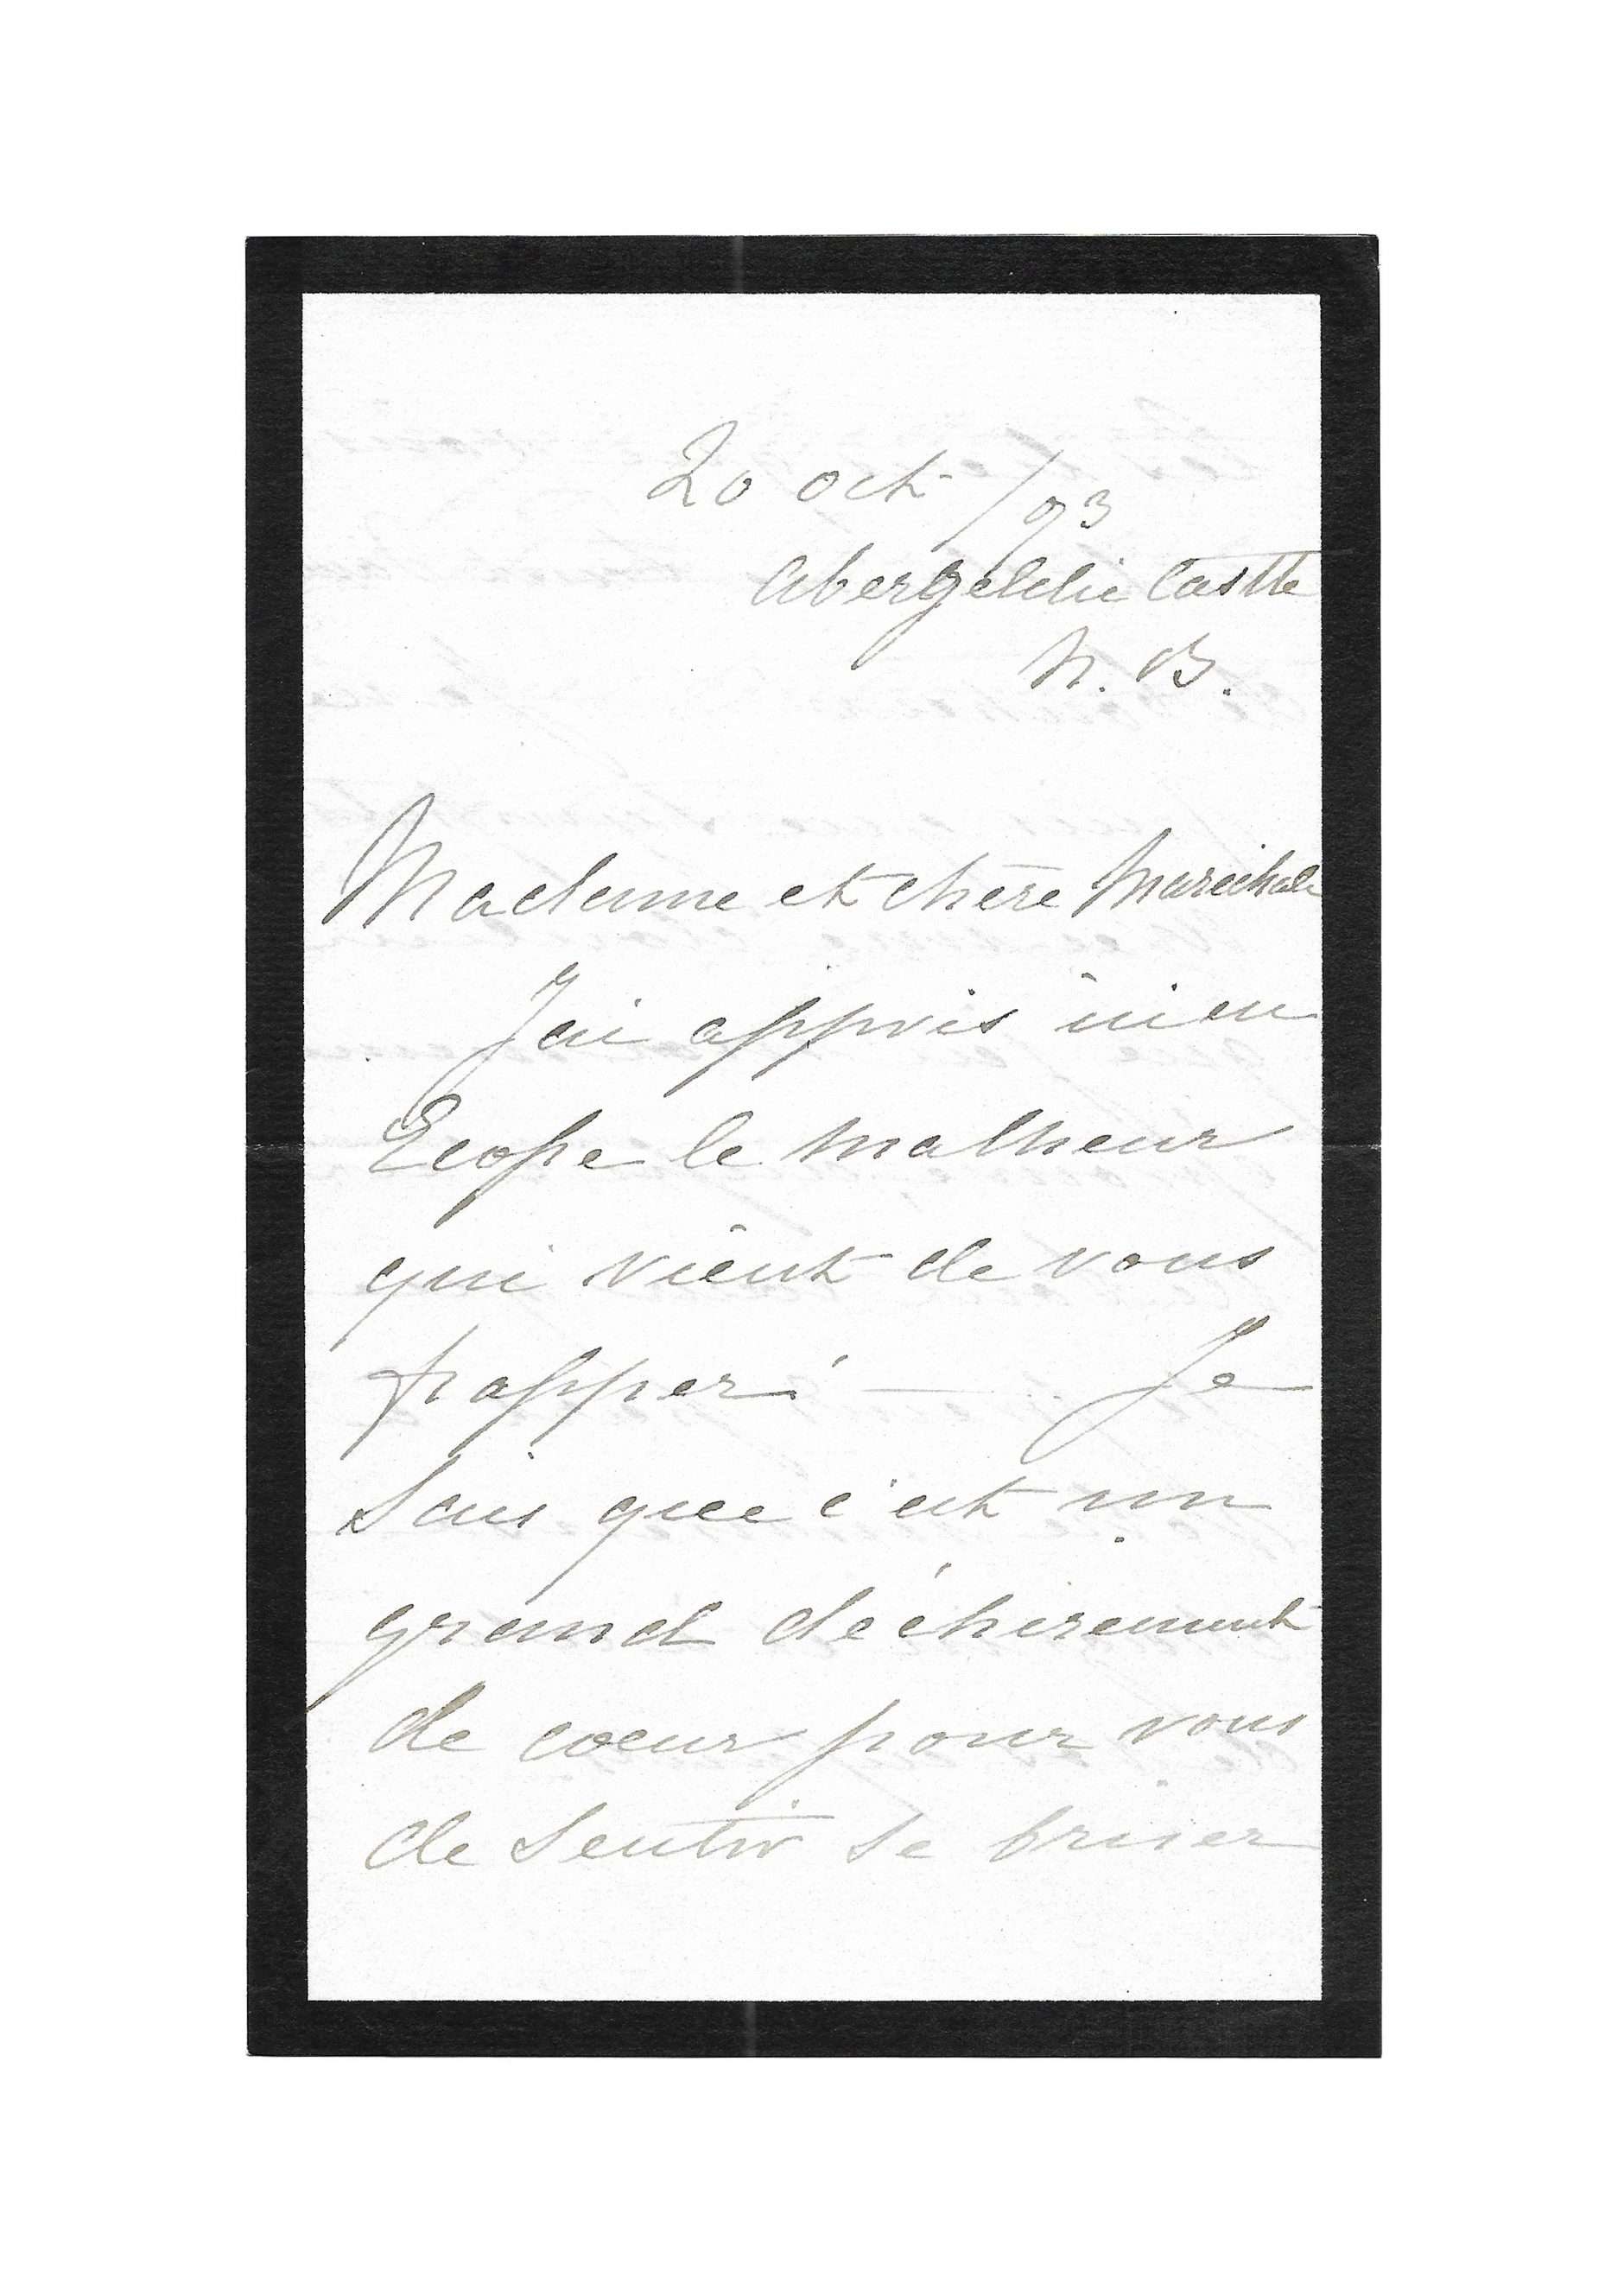 20 oct /93
Abergeldie Castle
N. B.
Madame et chère Maréchale
J'ai appris ici en
Ecosse le malheur
qui vient de vous
frapper! — Je
sais que c'est un
grand déchirement
de coeur pour vous
de sentir se briser